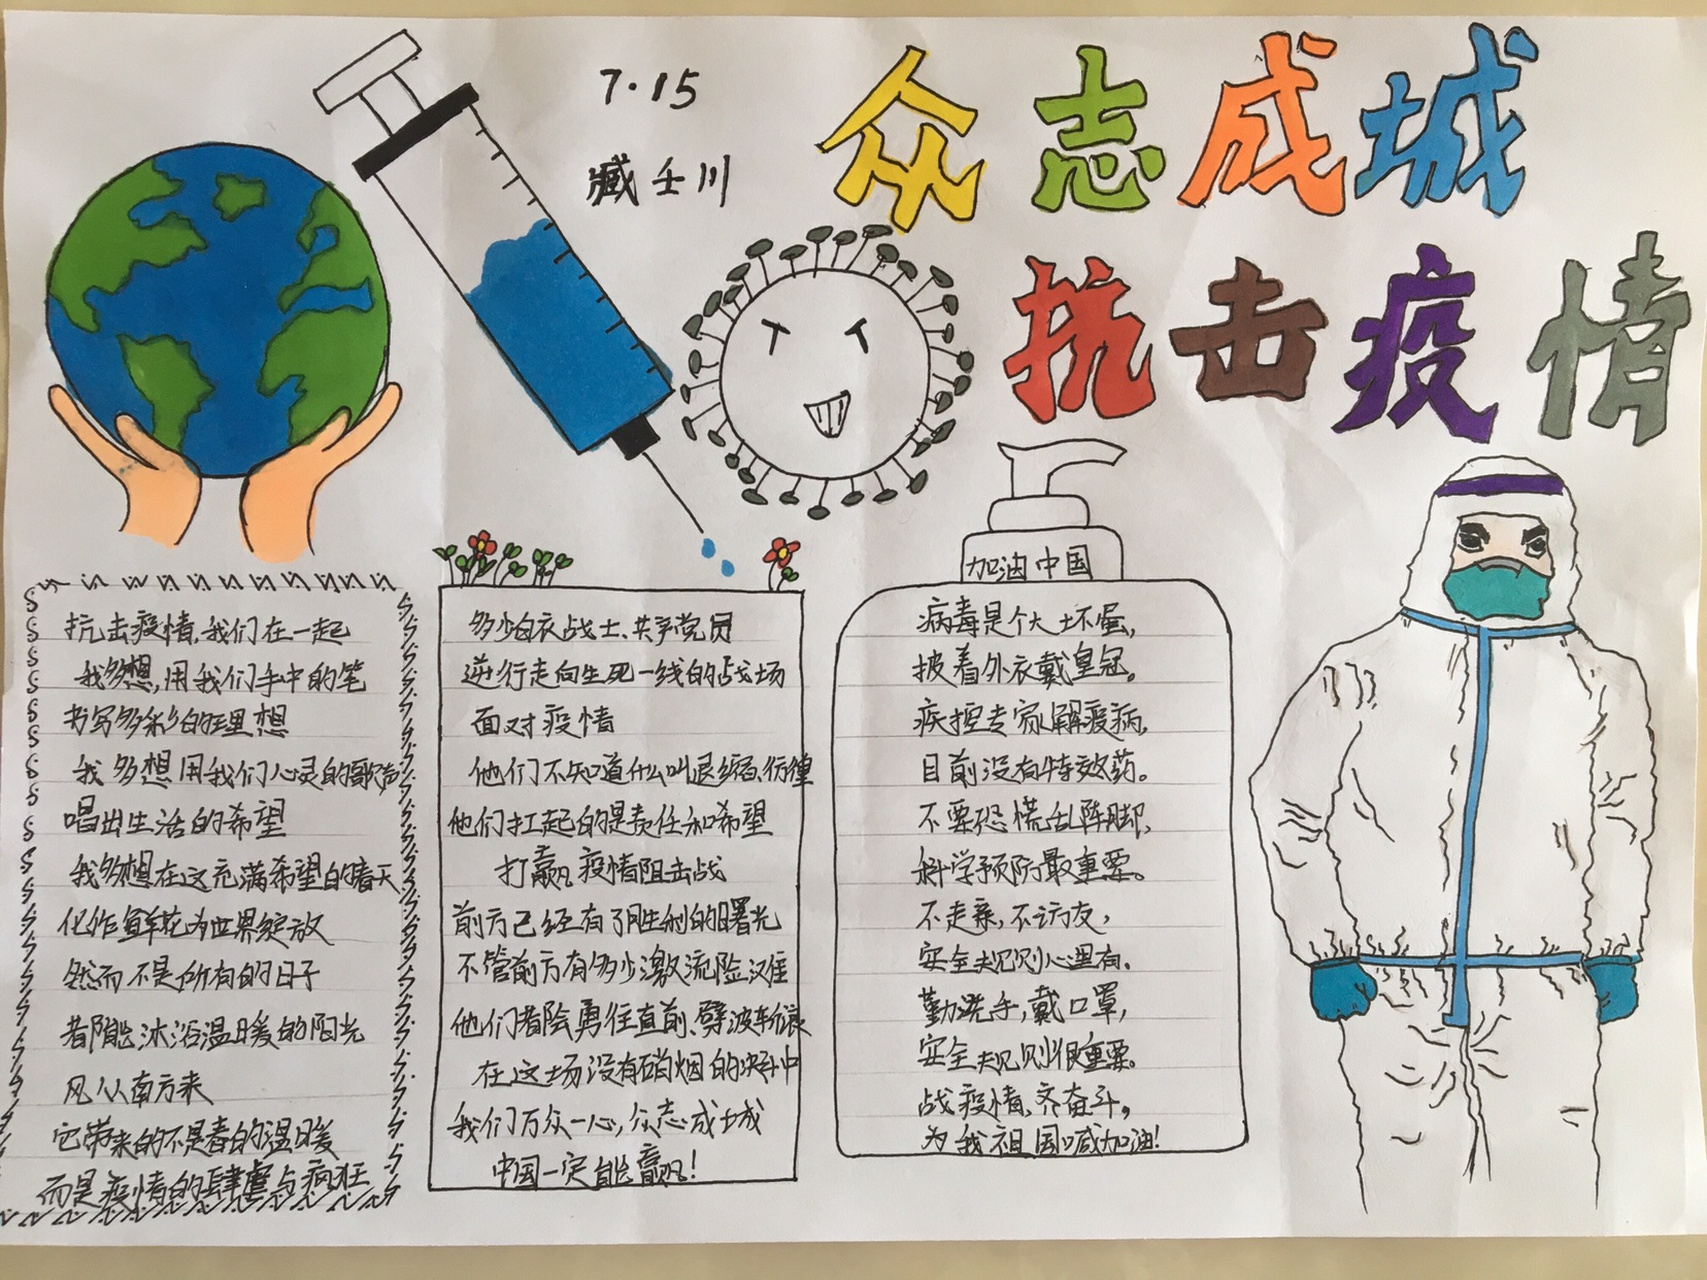 众志成城
抗击疫情
7.15
臧壬川
抗击疫情,我们在一起
我多想,用我们手中的笔
书写多彩的理想
我多想用我们心灵的歌声
唱出生活的希望
我多想在这充满希望的春天
化作鲜花为世界绽放
然而不是所有的日子
都能沐浴温暖的阳光
风从南方来
它带来的不是春的温暖
而是疫情的肆虐与疯狂
多少白衣战士、共产党员
逆行走向生死一线的战场
面对疫情
他们不知道什么叫退缩、彷徨
他们扛起的是责任和希望
打赢疫情阻击战
前方已经有了胜利的曙光
不管前方有多少激流险滩
他们都会勇往直前、劈波斩浪
在这场没有硝烟的决斗中
我们万众一心,众志成城
中国一定能赢!
加油中国
病毒是个大坏蛋,
披着外衣戴皇冠。
疾控专家解疫病,
目前没有特效药。
不要恐慌乱阵脚,
科学预防最重要。
不走亲,不访友,
安全规则心里有。
勤洗手,戴口罩,
安全规则很重要。
战疫情,齐奋斗,
为我祖国喊加油!